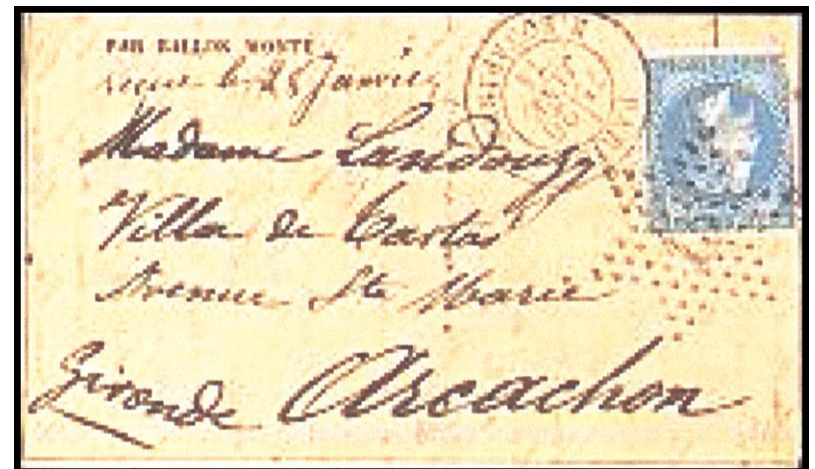 PAR BALLON MONTÉ
le 28 Janvier
Madame Landouzy
Villa de Carlos
Avenue Ste Marie
Gironde Arcachon